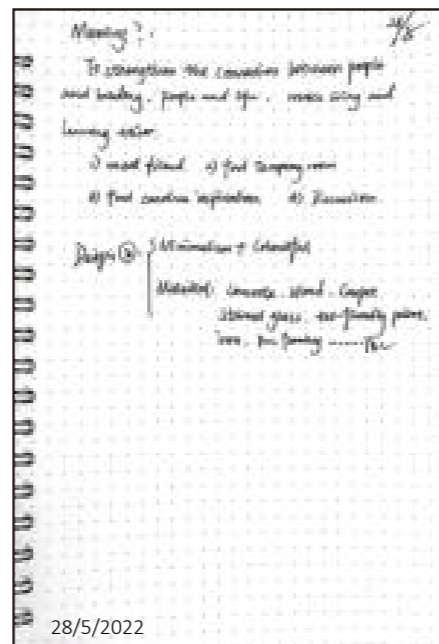 Meaning?
28/5
To strengthen the connection between people
and building, people and life, make living and
learning easier.
1) meet friend 2) find temporary room
3) find creative inspiration 4) Discussion
Design: Minimalism + Colourful
Material: Concrete, Wood, Carpet
Stained glass, eco-friendly paint,
iron
28/5/2022